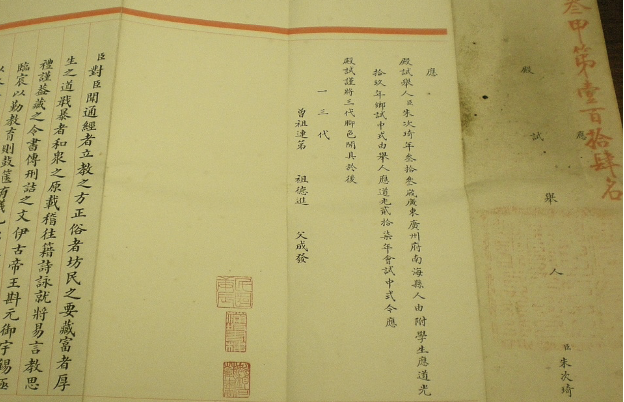 叁甲第壹百拾肆名
應
殿試舉人臣朱次琦
應
殿試舉人臣朱次琦年叁拾叁歲廣東廣州府南海縣人由附學生應道光
拾玖年鄉試中式由舉人應道光貳拾柒年會試中式今應
殿試謹將三代腳色開具於後
一三代
曾祖連第 祖德進 父成發
臣對臣聞通經者立教之方正俗者坊民之要藏富者厚
生之道戢暴者和衆之原載稽往籍詩詠就將易言教思
禮謹蓋藏之令書傳刑詰之文伊古帝王斟元御宇錫極
臨宸以勤教育則鼓篋有儀